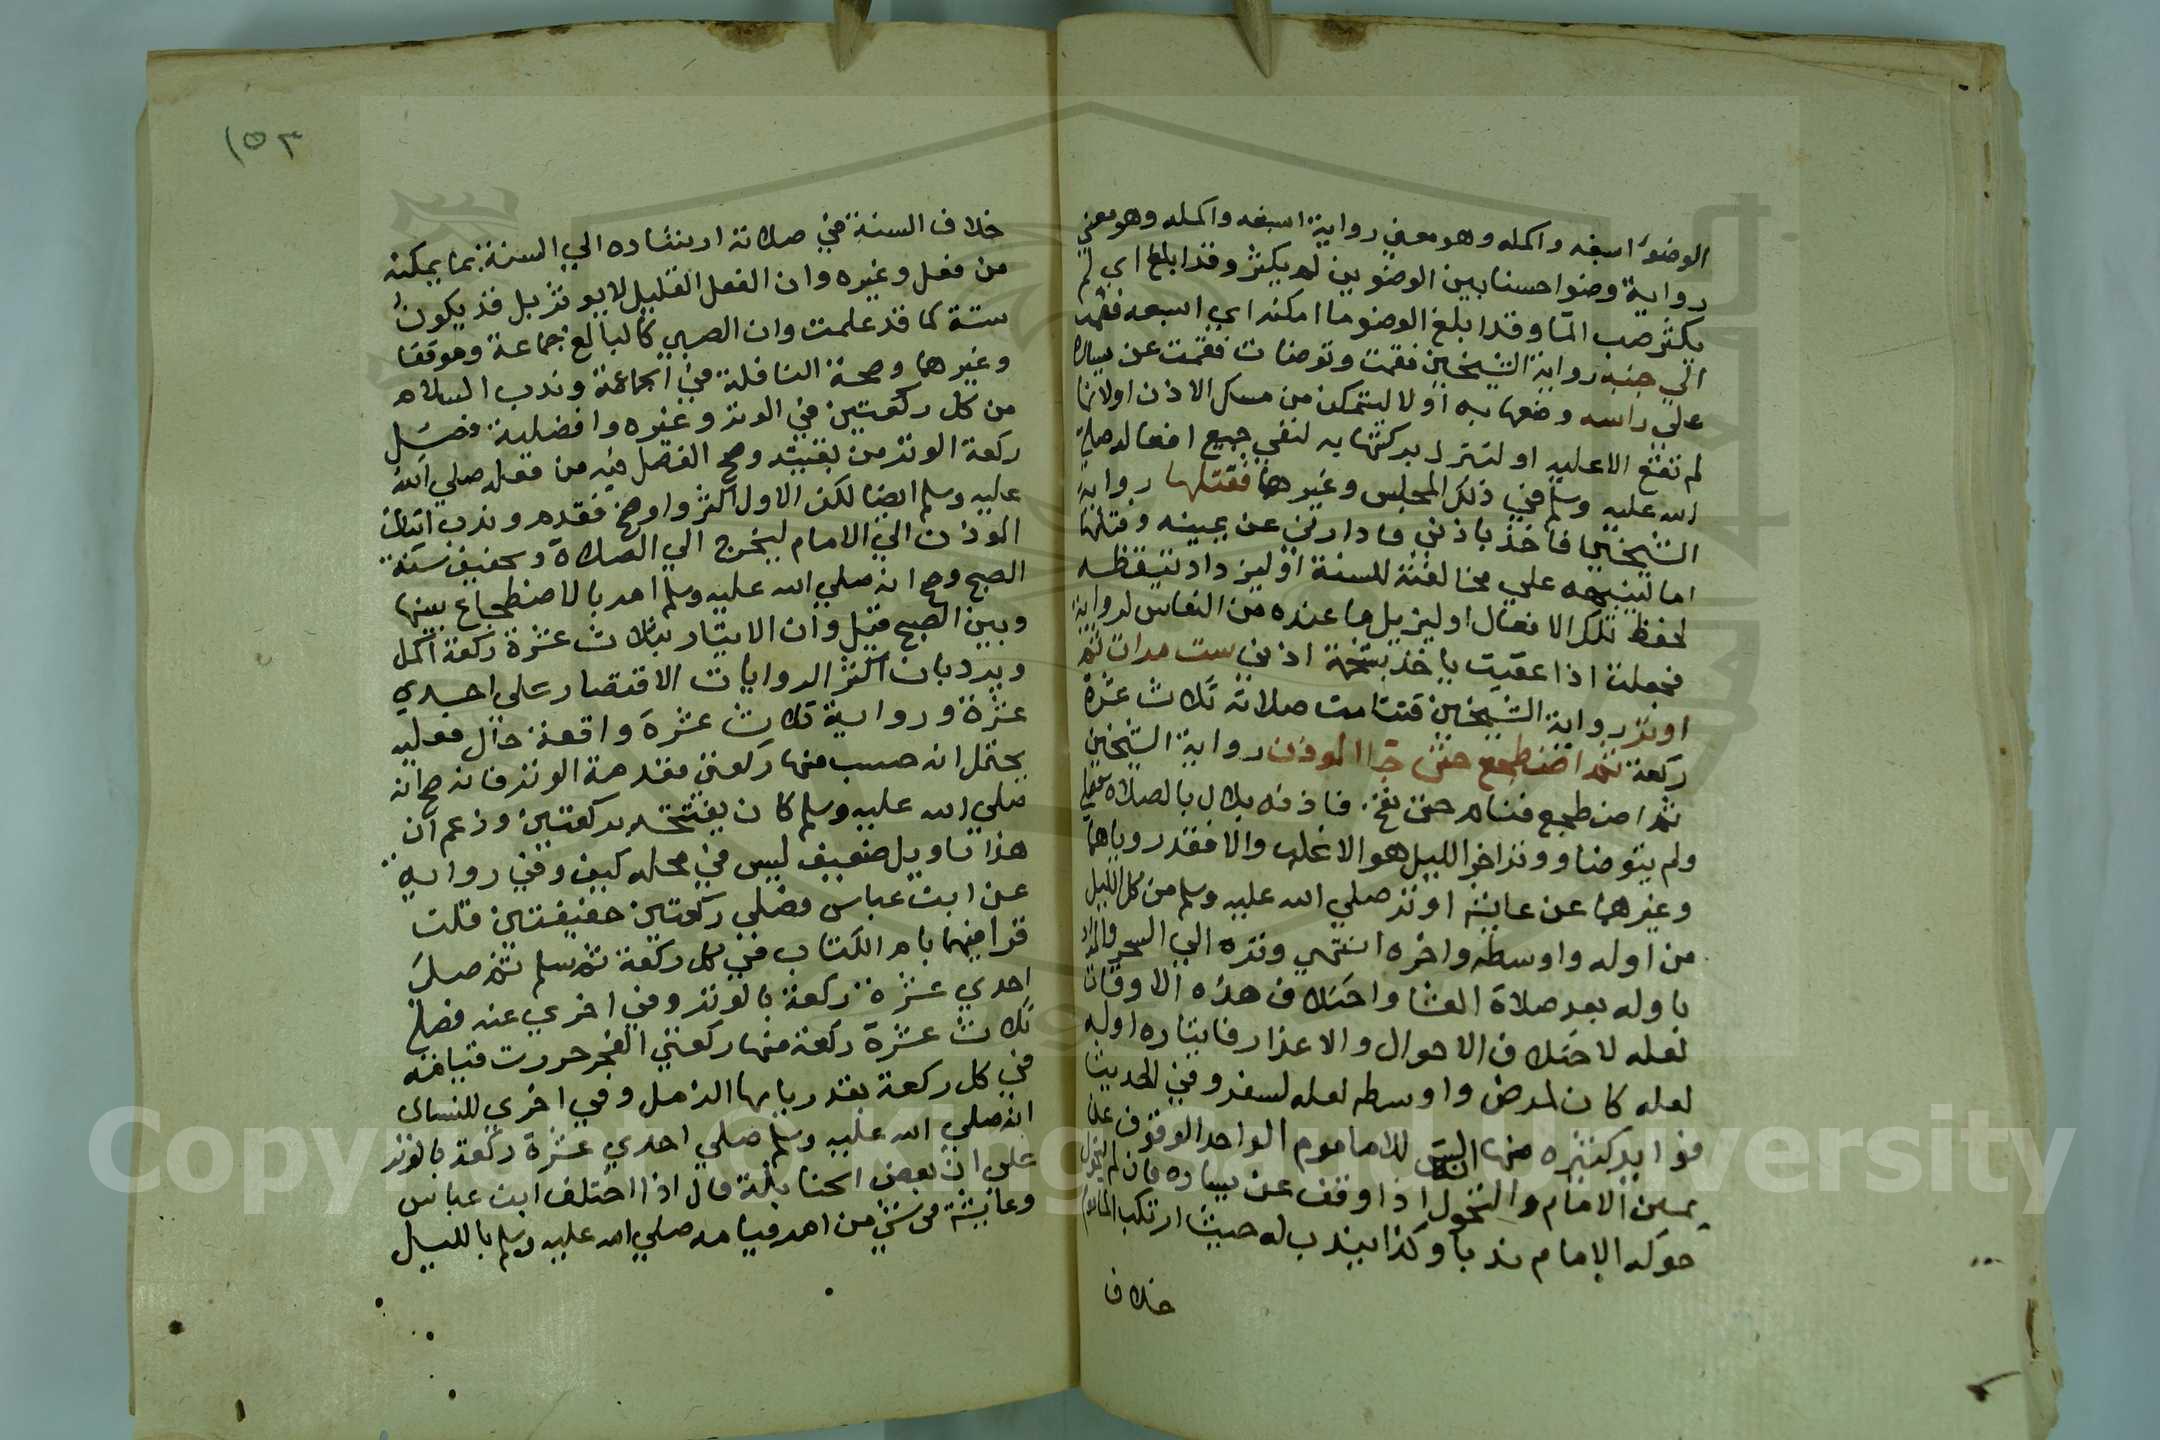 الوضوء اسبغه واكمله وهو معني رواية اسبغه واكمله وهو معني
رواية وضوا حسنا بين الوضوين لم يكثر وقد ابلغ اي لم
يكثر صب الما وقد ابلغ الوضو ما امكنه اي اسبغه فقمت
الي جنبه رواية الشيخين فقمت وتوضات فقمت عن يساره
علي راسه وضعها به اولا ليتمكن من مسك الاذن اولانها
لم تقع الا عليه او لتنزل بركتها به لنفي جميع افعاله صلي
الله عليه وسلم في ذلك المجلس وغيرها ففتلها رواية
الشيخين فاخذ باذني فادارني عن يمينه وفتلها
اما لينبهه علي مخالفته للسنة او ليزداد تيقظه
لحفظ تلك الافعال او ليزيل ما عنده من النعاس لرواية
فجعلت اذا غفيت ياخذ بشحمة اذني ست مرات ثم
اوتر رواية الشيخين فتتامت صلاته ثلاث عشرة
ركعة ثم اضطجع حتى جا المؤذن رواية الشيخين
ثم اضطجع فنام حتى نفخ فاذنه بلال بالصلاة فصلي
ولم يتوضا ووتر اخر الليل هو الاغلب والا فقد رويا هما
وغيرهما عن عايشة اوتر صلي الله عليه وسلم من كل الليل
من اوله واوسطه واخره انتهي وتره الي السحر والمراد
باوله بعد صلاة العشا واختلاف هذه الاوقات
لعله لاختلاف الاحوال والاعذار فايتاره اوله
لعله كان لمرض واوسطه لعله لسفر وفي الحديث
فوايد كثيرة منها للماموم الواحد الوقوف عن
يمين الامام والتحول اذا وقف عن يساره فان لم يتحول
حوله الامام ندبا وكذا يندب له حيث ارتكب الماموم
خلاف
١٥٣
خلاف السنة في صلاته ارشاده الي السنة بما يمكنه
من فعل وغيره وان الفعل القليل لا يوثر بل قد يكون
سنة كما قد علمت وان الصبي كالبالغ جماعة وموقفا
وغيرهما وصحة النافلة في الجماعة وندب السلام
من كل ركعتين في الوتر وغيره وافضلية فصل
ركعة الوتر من بقيته وصح الفصل فيه من فعله صلي الله
عليه وسلم ايضا لكن الاول اكثر واوضح فقدم وندب اتيان
الموذن الي الامام ليخرج الي الصلاة وتخفيف سنة
الصبح وصح انه صلي الله عليه وسلم امر بالاضطجاع بينها
وبين الصبح قيل وان الايتار بثلاث عشرة ركعة اكمل
ويرد بان اكثر الروايات الاقتصار على احدي
عشرة ورواية ثلاث عشرة واقعة حال فعليه
يحتمل انه حسب منها ركعتي مقدمة الوتر فانه صح انه
صلي الله عليه وسلم كان يفتتحه بركعتين وزعم ان
هذا تاويل ضعيف ليس في محله كيف وفي رواية
عن ابن عباس فصلي ركعتين خفيفتين قلت
قرا فيهما بام الكتاب في كل ركعة ثم سلم ثم صلي
احدي عشرة ركعة بالوتر وفي اخري عنه فصلي
ثلاث عشرة ركعة منها ركعتي الفجر حررت قيامه
في كل ركعة بقدر يايها المزمل وفي اخري للنساي
انه صلي الله عليه وسلم صلي احدي عشرة ركعة بالوتر
علي ان بعض الحنابلة قال اذا اختلف ابن عباس
وعايشة في شي من امر قيامه صلي الله عليه وسلم بالليل